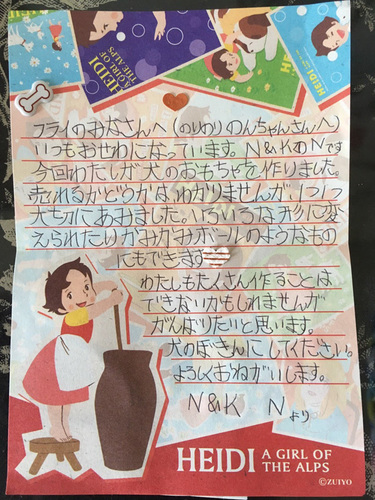 HEIDI
A GIRL OF
THE ALPS
HEIDI
A GIRL OF
THE ALPS
HEIDI
フライのみなさんへ(のりのりのんちゃんさんへ)
いつもおせわになっています。N&KのNです
今回わたしが犬のおもちゃを作りました。
売れるかどうかは、わかりませんが、1つ1つ
大切にあみました。いろいろな形に変
えられたりがみがみボールのようなもの
にもできます
わたしもたくさん作ることは
できないかもしれませんが
がんばりたいと思います。
犬のぼきんにしてください。
よろしくおねがいします。
N&K Nより
HEIDI A GIRL OF
THE ALPS
©ZUIYO